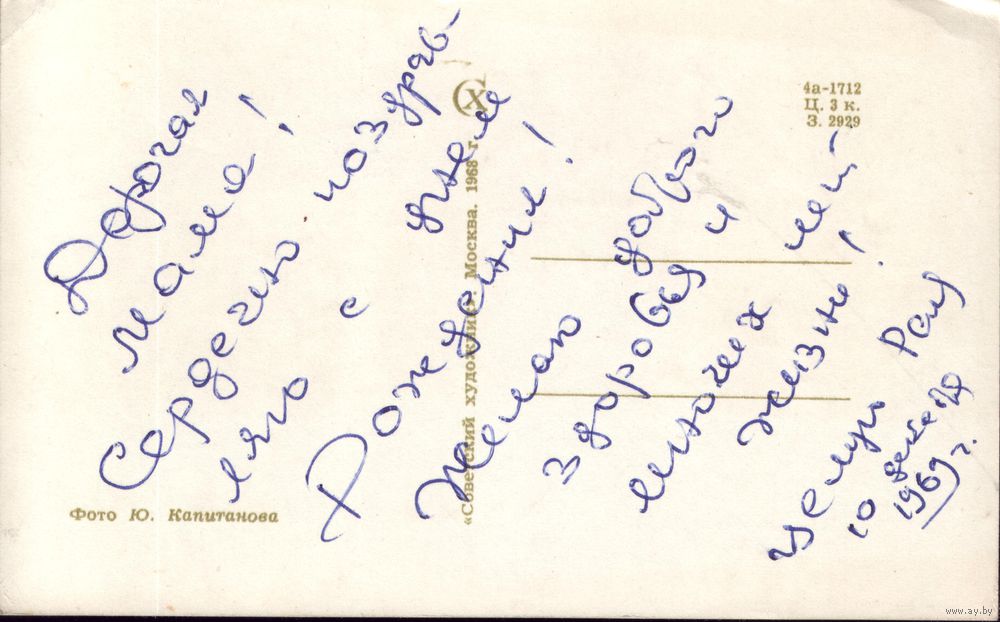 Дорогая
мама!
Сердечно поздрав-
ляю с днем
Рождения!
Желаю доброго
здоровья и
многих лет
жизни!
Целую Рая
10 декабря
1969 г.
4а-1712
Ц. 3 к.
З. 2929
«Советский художник». Москва. 1968 г.
Фото Ю. Капитанова
www.ay.by